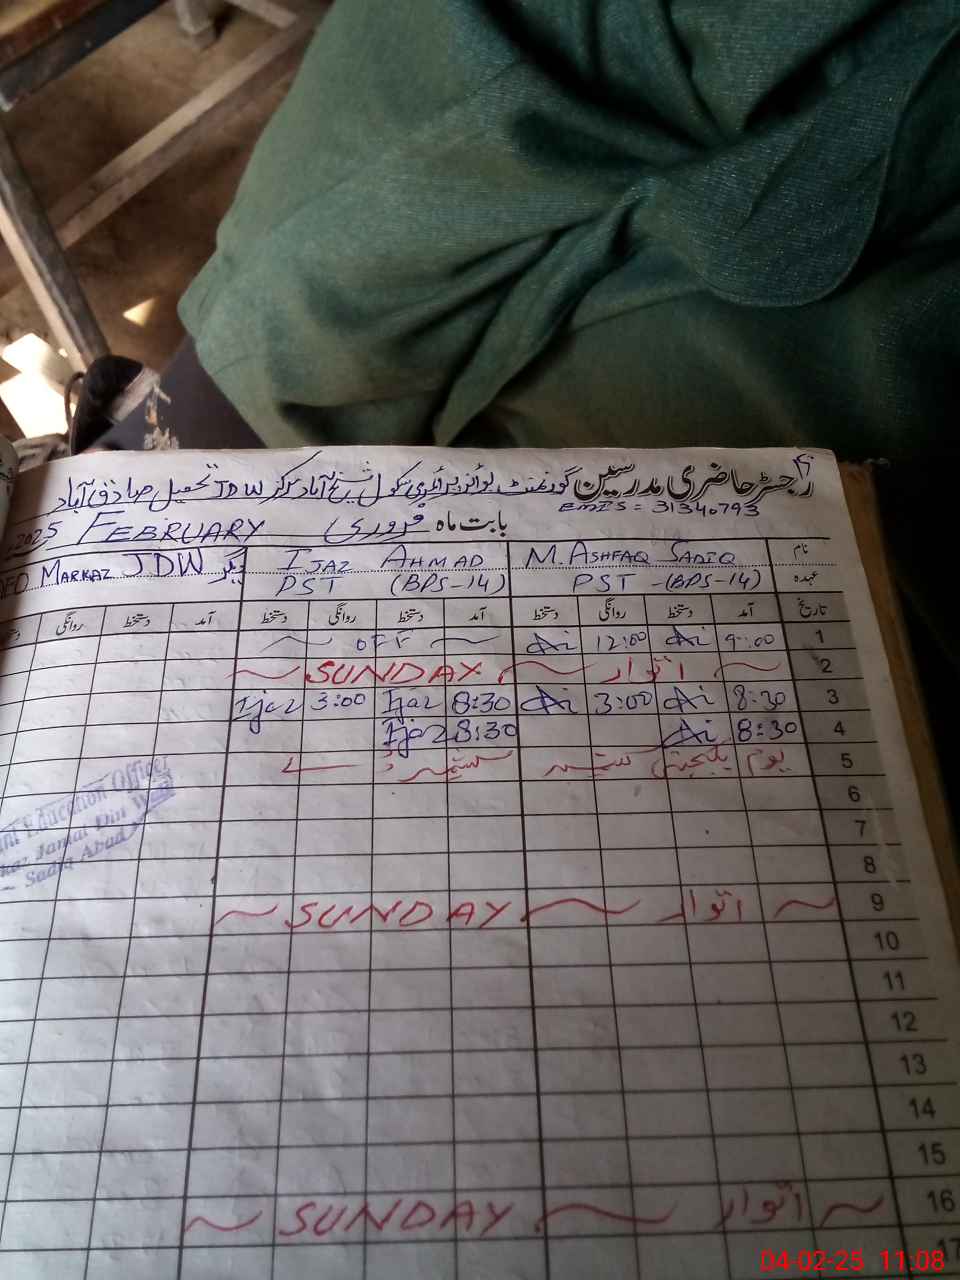 رجسٹر حاضری مدرسین گورنمنٹ بوائز پرائمری سکول شیخ آباد مرکز JDW تحصیل صادق آباد
EMIS = 31340793
بابت ماہ فروری FEBRUARY 2025
نام M. ASHFAQ SADIQ IJAZ AHMAD دیگر MARKAZ JDW
عہدہ PST -(BPS-14) PST (BPS-14)
تاریخ آمد دستخط روانگی دستخط آمد دستخط روانگی دستخط آمد دستخط روانگی
1 9:00 Ai 12:00 Ai ~ OFF ~
2 ~ اتوار ~ SUNDAY ~
3 8:30 Ai 3:00 Ai 8:30 Ijaz 3:00 Ijaz
4 8:30 Ai 8:30 Ijaz
5 یوم یکجہتی کشمیر
6
7
8
Education Officer
Jamal Din Wali
Sadiq Abad
9 ~ اتوار ~ SUNDAY ~
10
11
12
13
14
15
16 ~ اتوار ~ SUNDAY ~
17
04-02-25 11:08